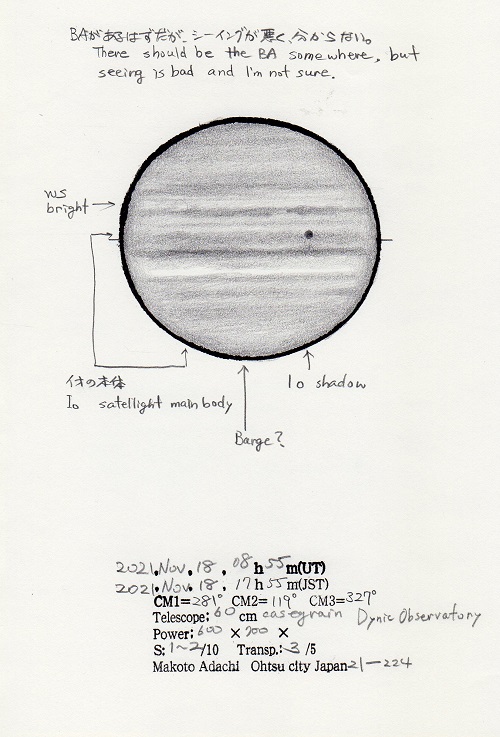 BAがあるはずだが、シーイングが悪く、分からない。
There should be the BA somewhere, but
seeing is bad and I'm not sure.
WS
bright
イオの本体
Io satellight main body
Io shadow
Barge?
2021.Nov.18, 08h55m(UT)
2021.Nov.18, 17h55m(JST)
CM1=281° CM2=119° CM3=327°
Telescope: 60 cm cassegrain Dynic Observatory
Power: 600 × 700 ×
S: 1~2/10 Transp.: 3 /5
Makoto Adachi Ohtsu city Japan 21-224